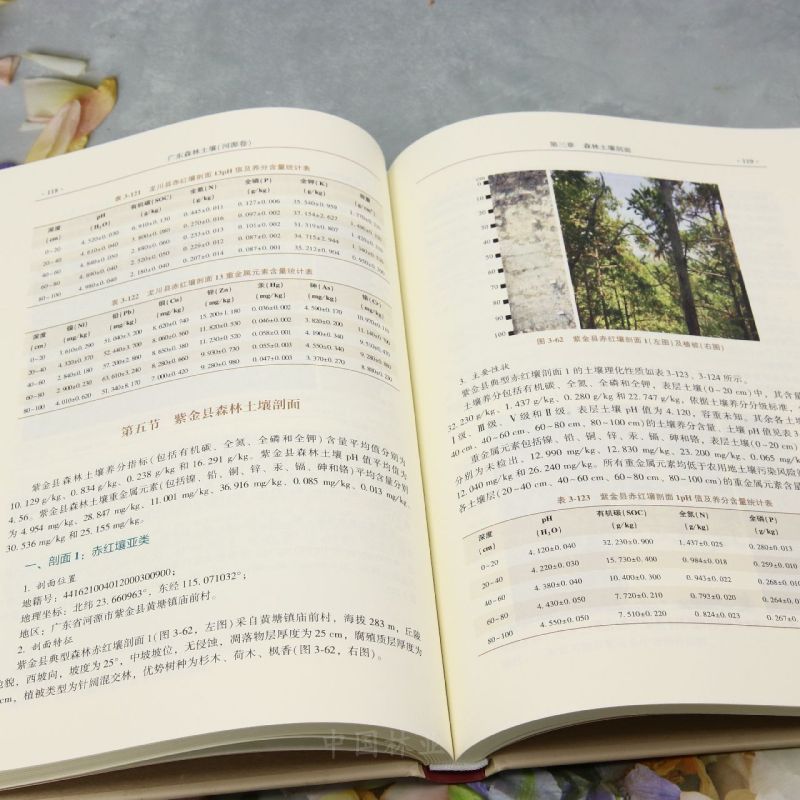 · 118 ·
广东森林土壤(河源卷)
表 3-121 龙川县赤红壤剖面 13pH 值及养分含量统计表
深度 (cm) pH (H₂O) 有机碳(SOC) (g/kg) 全氮(N) (g/kg) 全磷(P) (g/kg) 全钾(K) (g/kg)
0~20 4.320±0.030 6.910±0.130 0.445±0.011 0.127±0.006 35.540±0.959
20~40 4.810±0.040 3.800±0.080 0.270±0.016 0.097±0.002 37.154±2.627
40~60 4.840±0.050 2.680±0.060 0.233±0.013 0.101±0.002 31.519±0.807
60~80 4.890±0.040 2.520±0.050 0.229±0.012 0.087±0.002 34.715±2.944
80~100 4.980±0.040 2.180±0.040 0.207±0.014 0.087±0.001 35.212±0.904
表 3-122 龙川县赤红壤剖面 13 重金属元素含量统计表
深度 (cm) 镍(Ni) (mg/kg) 铅(Pb) (mg/kg) 铜(Cu) (mg/kg) 锌(Zn) (mg/kg) 汞(Hg) (mg/kg) 砷(As) (mg/kg) 铬(Cr) (mg/kg)
0~20 3.610±0.290 51.040±3.200 8.620±0.740 15.200±1.180 0.036±0.002 4.590±0.170 10.970±0.110
20~40 4.320±0.370 52.440±3.700 8.060±0.360 11.820±0.530 0.046±0.002 3.820±0.200
40~60 2.840±0.180 57.200±2.860 8.650±0.380 11.230±0.520 0.058±0.001 4.190±0.340
60~80 2.900±0.230 63.610±3.240 8.280±0.660 9.930±0.730 0.055±0.003 4.550±0.340 9.280±0.880
80~100 4.010±0.620 51.340±8.170 7.000±0.420 9.280±0.980 0.047±0.003 3.370±0.270 8.880±0.230
第五节 紫金县森林土壤剖面
紫金县森林土壤养分指标(包括有机碳、全氮、全磷和全钾)含量平均值分别为
10.129 g/kg、0.834 g/kg、0.238 g/kg 和 16.291 g/kg。紫金县森林土壤 pH 值平均值为
4.56。紫金县森林土壤重金属元素(包括镍、铅、铜、锌、汞、镉、砷和铬)平均含量分别
为 4.954 mg/kg、28.847 mg/kg、11.001 mg/kg、36.916 mg/kg、0.085 mg/kg、0.013 mg/kg、
30.536 mg/kg 和 25.155 mg/kg。
一、剖面 1：赤红壤亚类
1. 剖面位置
地籍号：441621004012000300900；
地理坐标：北纬 23.660963°，东经 115.071032°；
地区：广东省河源市紫金县黄塘镇庙前村。
2. 剖面特征
紫金县典型森林赤红壤剖面 1(图 3-62，左图)采自黄塘镇庙前村，海拔 283 m，丘陵
地貌，西坡向，坡度为 25°，中坡坡位，无侵蚀，凋落物层厚度为 25 cm，腐殖质层厚度为
cm，植被类型为针阔混交林，优势树种为杉木、荷木、枫香(图 3-62，右图)。
第三章 森林土壤剖面
· 119 ·
cm
0
10
20
30
40
50
60
70
80
90
100
图 3-62 紫金县赤红壤剖面 1(左图)及植被(右图)
3. 主要性状
紫金县典型赤红壤剖面 1 的土壤理化性质如表 3-123、3-124 所示。
土壤养分包括有机碳、全氮、全磷和全钾，表层土壤(0~20 cm)中，其含量
32.230 g/kg、1.437 g/kg、0.280 g/kg 和 22.747 g/kg，依据土壤养分分级标准，
Ⅰ级、Ⅲ级、Ⅴ级和Ⅱ级。表层土壤 pH 值为 4.120，容重未知。其余各土
40 cm、40~60 cm、60~80 cm、80~100 cm)的土壤养分含量、土壤 pH 值见表3
重金属元素包括镍、铅、铜、锌、汞、镉、砷和铬，表层土壤(0~20 cm)
分别为未检出、12.990 mg/kg、12.830 mg/kg、23.200 mg/kg、0.065 mg/k
12.040 mg/kg 和 26.240 mg/kg。所有重金属元素均低于农用地土壤污染风险
各土壤层(20~40 cm、40~60 cm、60~80 cm、80~100 cm)的重金属元素含
表 3-123 紫金县赤红壤剖面 1pH 值及养分含量统计表
深度 (cm) pH (H₂O) 有机碳(SOC) (g/kg) 全氮(N) (g/kg) 全磷(P) (g/kg)
0~20 4.120±0.040 32.230±0.900 1.437±0.025 0.280±0.013
20~40 4.220±0.030 15.730±0.400 0.984±0.018 0.259±0.010
40~60 4.380±0.040 10.400±0.300 0.943±0.022 0.268±0.010
60~80 4.430±0.050 7.720±0.210 0.793±0.020 0.264±0.01
80~100 4.550±0.050 7.510±0.220 0.824±0.023 0.267±0.
中国林业